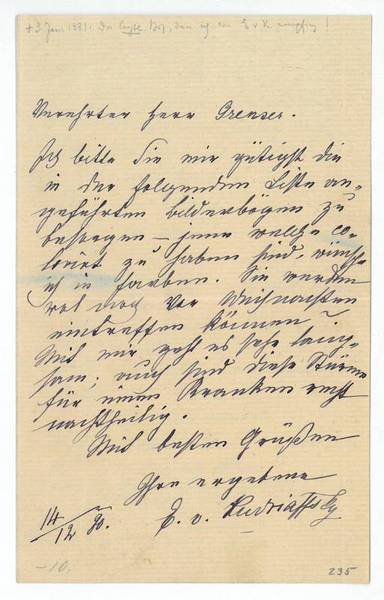 † 3 Jan. 1891. Der letzte Brief, den ich von E v K empfing!
Verehrter Herr Grenser.
Ich bitte Sie mir gütigst die
in der folgenden Liste an-
geführten Bilderbögen zu
besorgen – jene welche co-
lorirt zu haben sind, wünsche
ich in Farben. Sie werden
wol noch vor Weihnachten
eintreffen können?
Mit mir geht es sehr lang-
sam; auch sind diese Stürme
für einen Kranken recht
nachtheilig.
Mit besten Grüßen
Ihre ergebene
14/12 90. E. v. Kudriaffsky
-10.
235